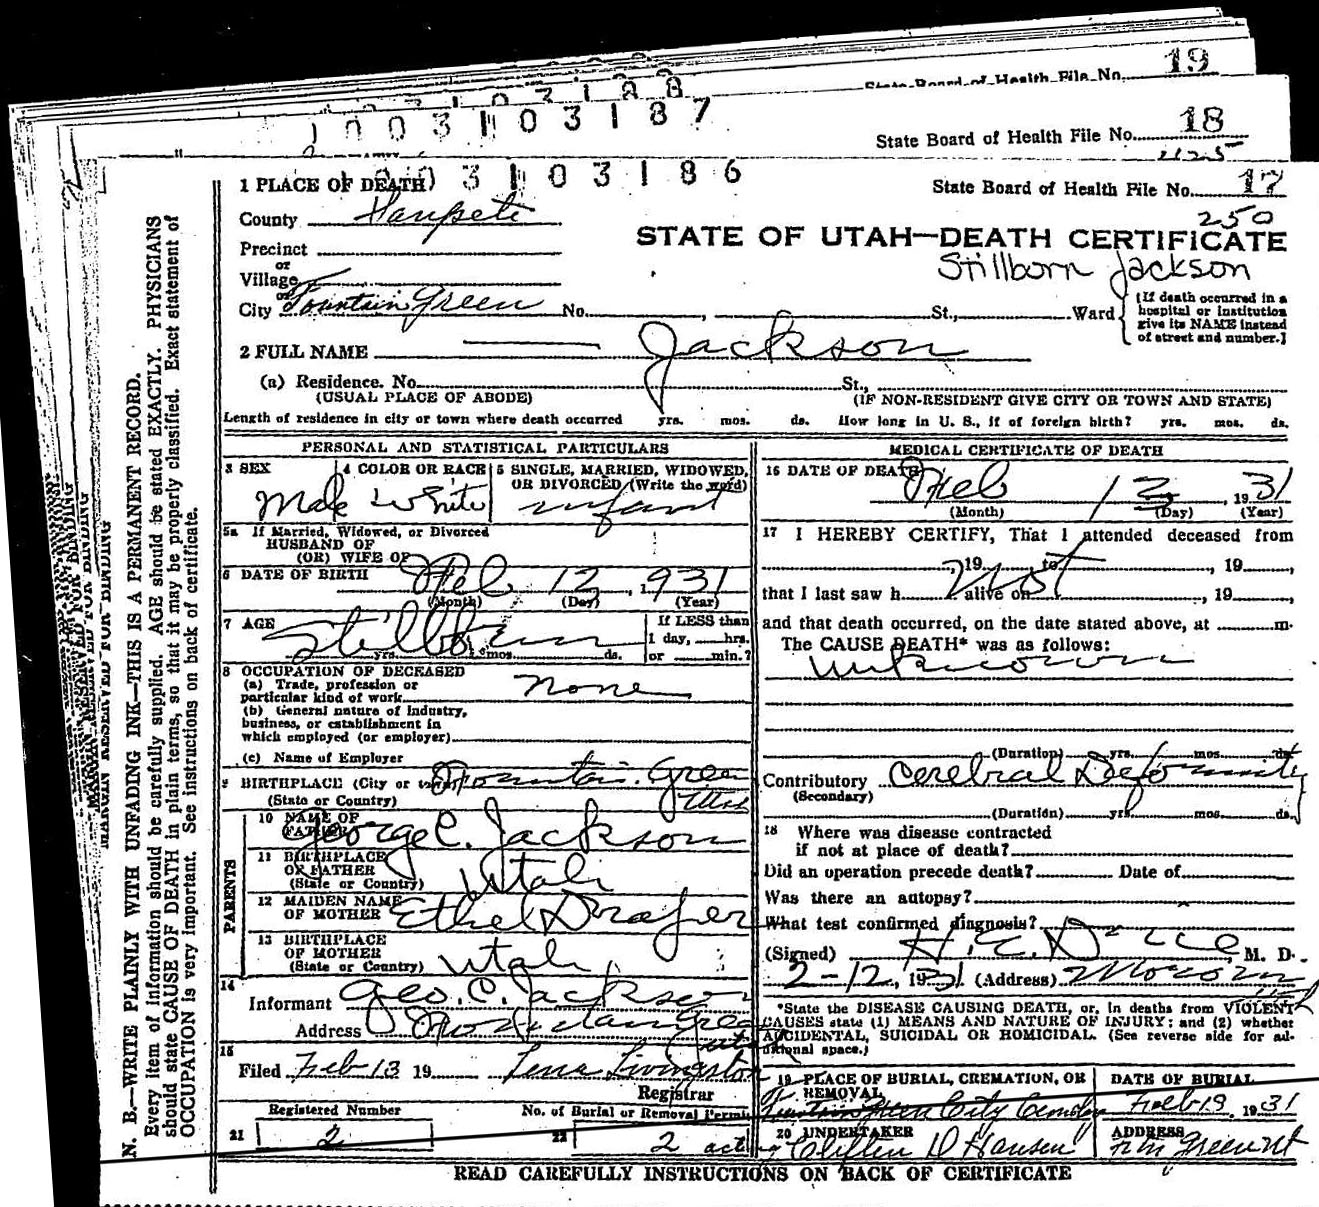 State Board of Health File No. 19
1003103188
1003103187
State Board of Health File No. 18
1003103186
State Board of Health File No. 17
250
1 PLACE OF DEATH
County Sanpete
STATE OF UTAH—DEATH CERTIFICATE
Stillborn Jackson
Precinct
or
Village
or
City Fountain Green No. , St., Ward
[If death occurred in a
hospital or institution
give its NAME instead
of street and number.]
2 FULL NAME Jackson
(a) Residence. No. St.,
(USUAL PLACE OF ABODE) (IF NON-RESIDENT GIVE CITY OR TOWN AND STATE)
Length of residence in city or town where death occurred yrs. mos. ds. How long in U. S., if of foreign birth? yrs. mos. ds.
PERSONAL AND STATISTICAL PARTICULARS
3 SEX 4 COLOR OR RACE 5 SINGLE, MARRIED, WIDOWED,
OR DIVORCED (Write the word)
Male White infant
5a If Married, Widowed, or Divorced
HUSBAND OF
(OR) WIFE OF
6 DATE OF BIRTH Feb 12, 1931
(Month) (Day) (Year)
7 AGE Stillborn
yrs. mos. ds.
If LESS than
1 day, hrs.
or min.?
8 OCCUPATION OF DECEASED
(a) Trade, profession or
particular kind of work none
(b) General nature of Industry,
business, or establishment in
which employed (or employer)
(c) Name of Employer
9 BIRTHPLACE (City or town) Fountain Green
(State or Country) Utah
PARENTS
10 NAME OF
FATHER George C. Jackson
11 BIRTHPLACE
OF FATHER
(State or Country) Utah
12 MAIDEN NAME
OF MOTHER Ethel Draper
13 BIRTHPLACE
OF MOTHER
(State or Country) Utah
14
Informant Geo. C. Jackson
Address Fountain Green
Utah
15
Filed Feb 13 19 Lena Livingston
Registrar
Registered Number No. of Burial or Removal Permit
21 2 22 2
MEDICAL CERTIFICATE OF DEATH
16 DATE OF DEATH
Feb 12, 1931
(Month) (Day) (Year)
17 I HEREBY CERTIFY, That I attended deceased from
, 19 to , 19 ,
Not
that I last saw h alive on , 19 ,
and that death occurred, on the date stated above, at m.
The CAUSE DEATH* was as follows:
unknown
(Duration) yrs. mos. ds.
Contributory Cerebral Deformity
(Secondary)
(Duration) yrs. mos. ds.
18 Where was disease contracted
if not at place of death?
Did an operation precede death? Date of
Was there an autopsy?
What test confirmed diagnosis?
(Signed) H. E. M. D.
2-12, 1931 (Address) Moroni
Utah
*State the DISEASE CAUSING DEATH, or, in deaths from VIOLENT
CAUSES state (1) MEANS AND NATURE OF INJURY; and (2) whether
ACCIDENTAL, SUICIDAL OR HOMICIDAL. (See reverse side for additional space.)
19 PLACE OF BURIAL, CREMATION, OR
REMOVAL
DATE OF BURIAL
Fountain Green City Cemetery Feb 19, 1931
20 UNDERTAKER ADDRESS
Hansen
READ CAREFULLY INSTRUCTIONS ON BACK OF CERTIFICATE
MARGIN RESERVED FOR BINDING
N. B.—WRITE PLAINLY WITH UNFADING INK—THIS IS A PERMANENT RECORD.
Every item of information should be carefully supplied. AGE should be stated EXACTLY. PHYSICIANS
should state CAUSE OF DEATH in plain terms, so that it may be properly classified. Exact statement of
OCCUPATION is very important. See instructions on back of certificate.